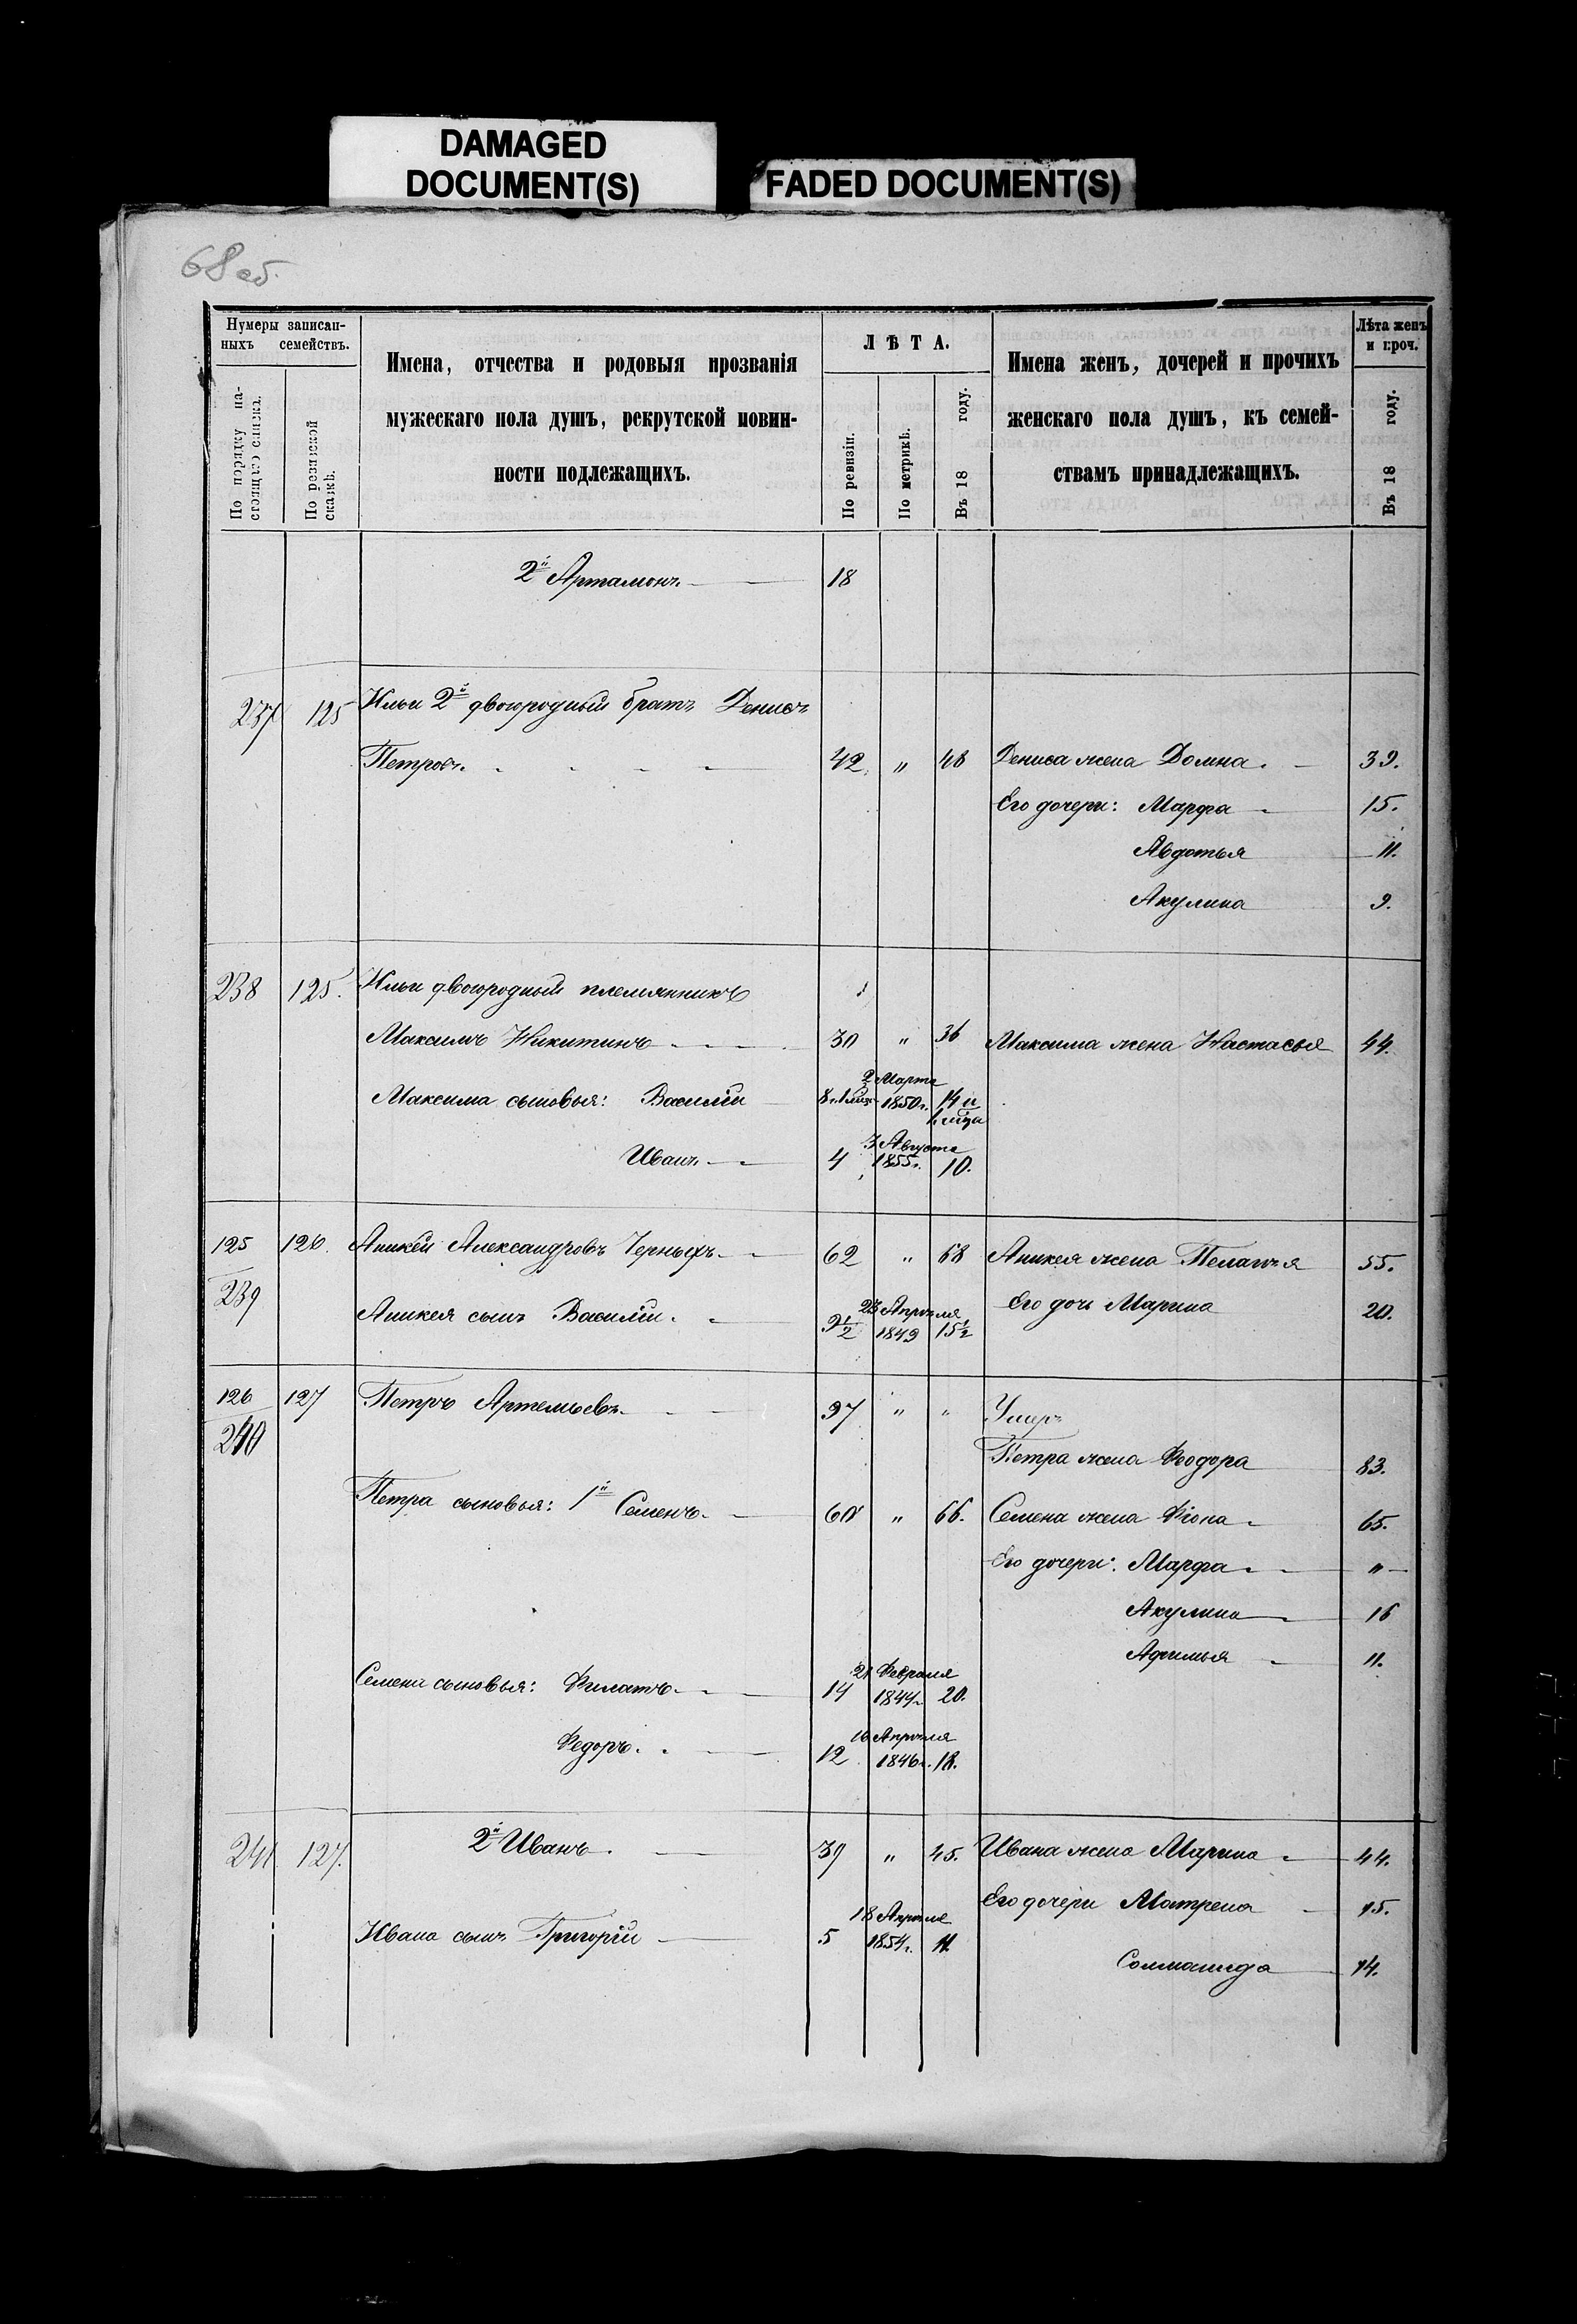 DAMAGED
DOCUMENT(S)
FADED DOCUMENT(S)
68 об.
Нумеры записан-
ныхъ семействъ.
По порядку на-
стоящаго списка.
По ревизской
сказкѣ.
Имена, отчества и родовыя прозванія
мужескаго пола душъ, рекрутской повин-
ности подлежащихъ.
ЛѢТА.
По ревизіи.
По метрикѣ.
Въ 18 году.
Имена женъ, дочерей и прочихъ
женскаго пола душъ, къ семей-
ствамъ принадлежащихъ.
Лѣта женъ
и проч.
Въ 18 году.
2й Артамонъ. 18
237 125 Ильи 2й двоюродный братъ Денисъ
Петровъ. 42. " 48 Дениса жена Домна. 39.
Его дочери: Марфа 15.
Авдотья 11.
Акулина 9.
238 125. Ильи двоюродный племянникъ
Максимъ Никитинъ 30 " 36 Максима жена Настасья 44.
Максима сыновья: Василій 8 г. 1 мѣс. 2 Марта 1850 г. 14 и 1 мѣца
Иванъ. 4 3 Августа 1855 г. 10.
125 126. Аникей Александровъ Черныхъ. 62 " 68 Аникея жена Пелагѣя 55.
239
Аникея сынъ Василій. 9½ 23 Апрѣля 1849 15½ Его дочь Марина 20.
126 127 Петръ Артемьевъ. 97 " " Умеръ
240
Петра жена Ѳеодора 83.
Петра сыновья: 1й Семенъ. 60 " 66. Семена жена Фіона 65.
Его дочери: Марфа. "
Акулина 16
Афимья 11.
Семена сыновья: Филатъ. 14 21 Февраля 1844 г. 20.
Федоръ. 12 16 Апрѣля 1846 г. 18.
241 127. 2й Иванъ. 39 " 45. Ивана жена Марина 44.
Его дочери Матрена 15.
Ивана сынъ Григорій 5 18 Апрѣля 1854 г. 11.
Соломанида 14.